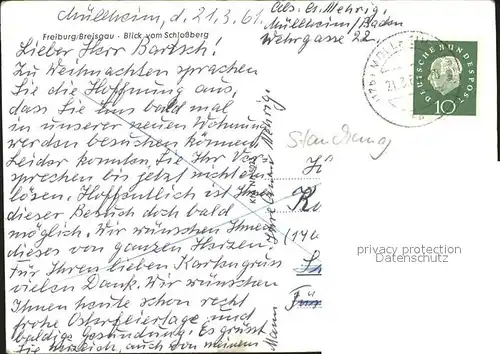 Müllheim, d. 21.3.61
Abs. A. Mehrig,
Müllheim/Baden
Wehrgasse 22,
Freiburg/Breisgau - Blick vom Schloßberg
Lieber Herr Bartsch!
Zu Weihnachten sprachen
Sie die Hoffnung aus,
dass Sie uns bald mal
in unserer neuen Wohnung
werden besuchen können
Leider konnten Sie Ihr Ver-
sprechen bis jetzt nicht ein
lösen. Hoffentlich ist Ihnen
dieser Besuch doch bald
möglich. Wir wünschen Ihnen
dieses von ganzem Herzen.
Für Ihren lieben Kartengruss
vielen Dank. Wir wünschen
Ihnen heute schon recht
frohe Osterfeiertage und
baldige Gesundung. Es grüsst
Sie herzlich, auch von meinem
Mann
Mehrig.
DEUTSCHE BUNDESPOST
10
privacy protection
Datenschutz